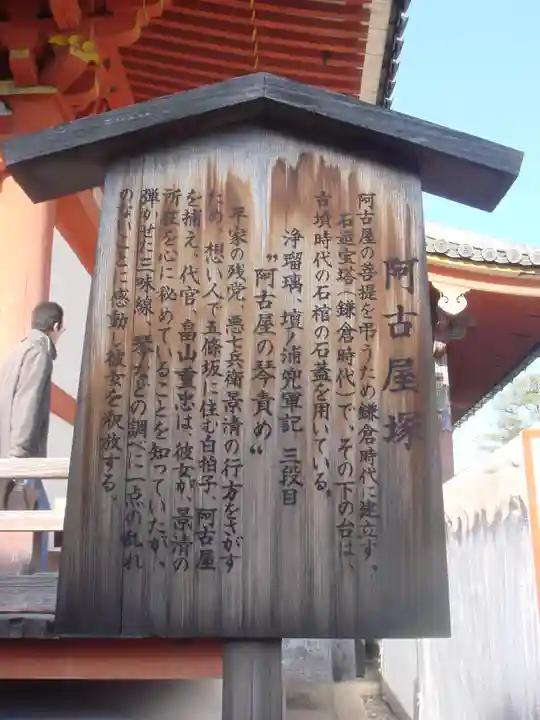 阿古屋塚
阿古屋の菩提を弔うため鎌倉時代に建立す。
石造宝塔（鎌倉時代）で、その下の台は、
古墳時代の石棺の石蓋を用いている。
浄瑠璃、壇ノ浦兜軍記 三段目
"阿古屋の琴責め"
平家の残党、悪七兵衛景清の行方をさがす
ため、想い人で五條坂に住む白拍子、阿古屋
を捕え、代官、畠山重忠は、彼女が、景清の
所在を心に秘めていることを知っていたが、
弾かせた三味線、琴などの調べに一点の乱れ
のないことに感動し彼女を釈放する。